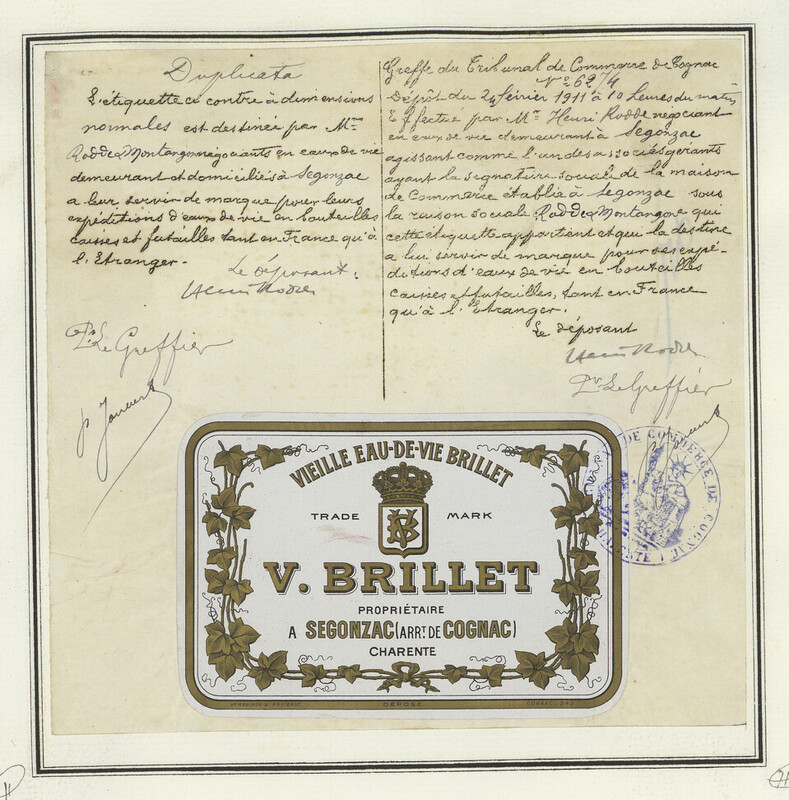 Duplicata
L'étiquette ci contre à dimensions
normales est destinée par Mrs
Rodde & Montangon négociants en eaux de vie
demeurant et domiciliés à Segonzac
a leur servir de marque pour leurs
expéditions d'eaux de vie en bouteilles
caisses et futailles tant en France qu'à
l'Etranger.
Le déposant:
Henri Rodde
Pr Le Greffier
Greffe du Tribunal de Commerce de Cognac
No 6274
Dépôt du 24 février 1911 à 10 heures du matin
Effectué par Mr Henri Rodde négociant
en eaux de vie demeurant à Segonzac
agissant comme l'un des associés gérants
ayant la signature sociale de la maison
de Commerce établie à Segonzac sous
la raison sociale Rodde & Montangon e qui
cette étiquette appartient et qui la destine
a lui servir de marque pour ses expé-
ditions d'eaux de vie en bouteilles
caisses et futailles, tant en France
qu'à l'Etranger.
Le déposant
Henri Rodde
Pr Le Greffier
DE COMMERCE DE COGNAC
VIEILLE EAU-DE-VIE BRILLET
TRADE MARK
VB
V. BRILLET
PROPRIÉTAIRE
A SEGONZAC (ARRT. DE COGNAC)
CHARENTE
DÉPOSÉ
COGNAC